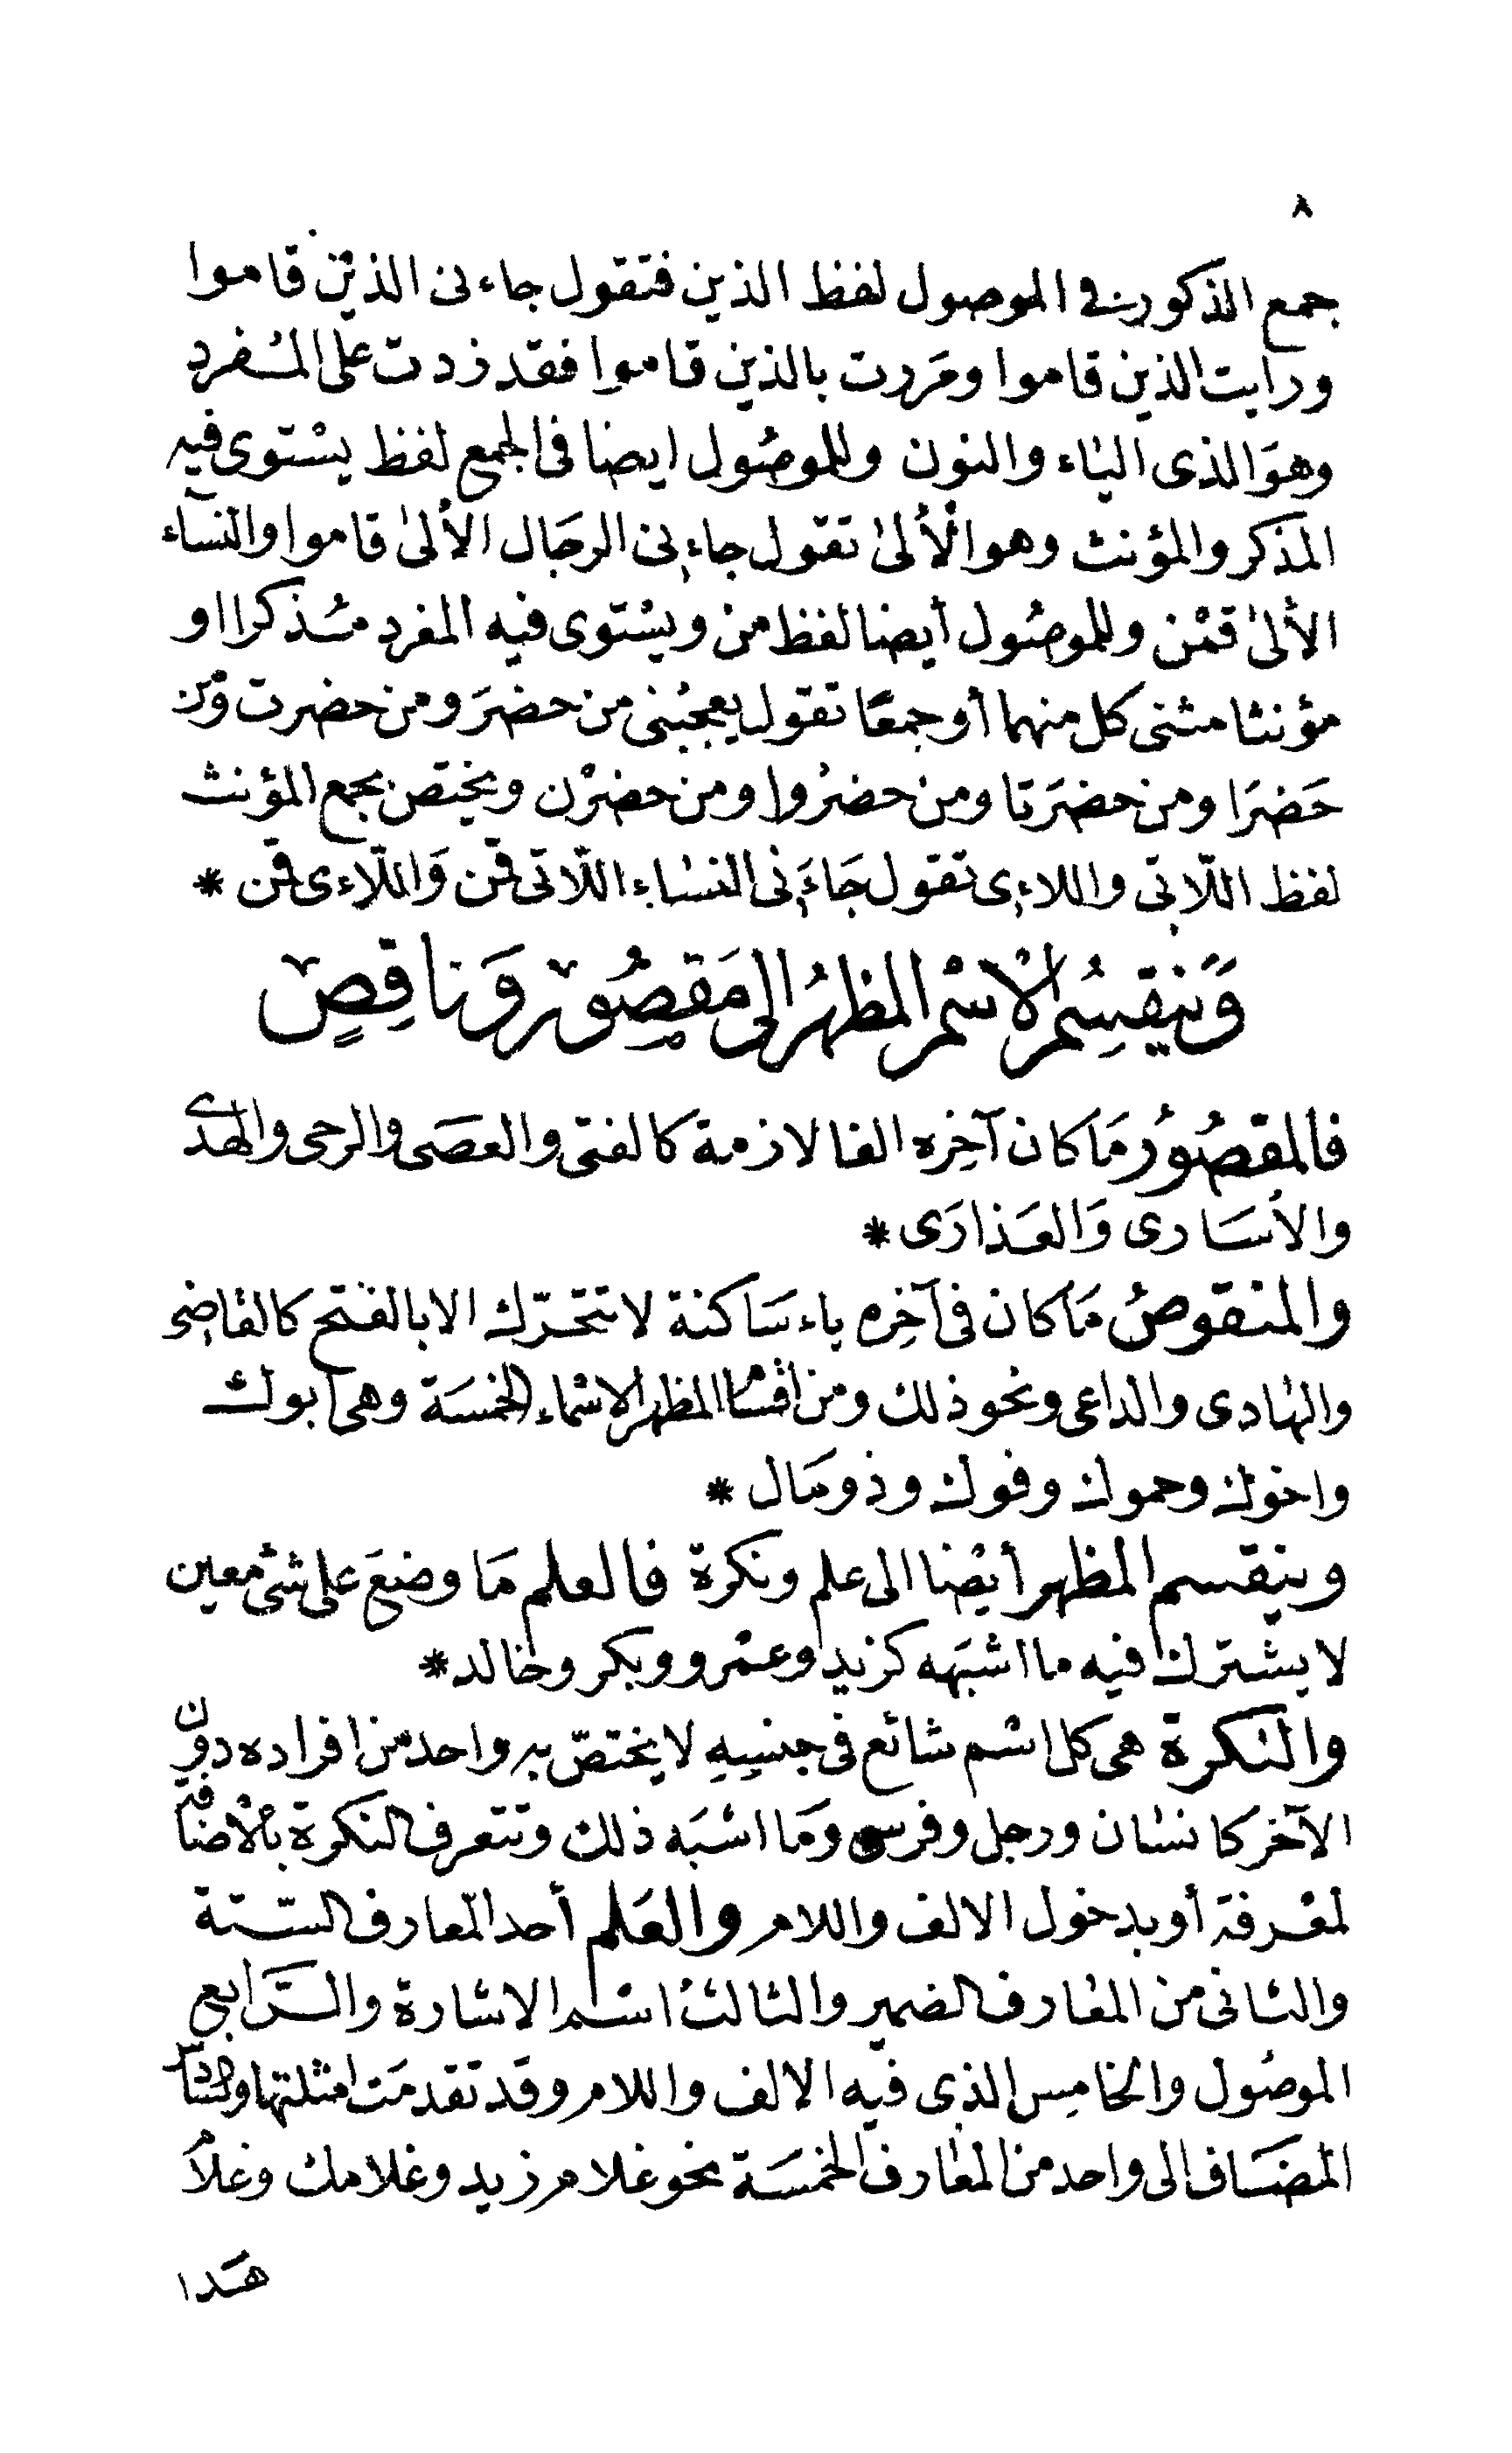 ٨
جمع الذكور في الموصول لفظ الذين فتقول جاءنى الذين قاموا
ورايت الذين قاموا ومَررت بالذين قاموا فقد زدت على المُفرد
وهوَ الذى الياء والنون وللموصُول ايضا فى الجمع لفظ يسْتوى فيه
المذكر والمؤنث وهو الْأُلىٰ تقول جاءنى الرجَال الأُلىٰ قاموا والنسآء
الأُلىٰ قمْن وللموصُول أيضا لفظ من ويسْتوى فيه المفرد مُذكرا او
مؤنثا مثنى كل منهما أو جمعًا تقول يعجبُنى من حضرَ ومن حضرت ومَن
حَضرَا ومن حضرَتا ومن حضرُوا ومن حضرْن ويختص بجمع المؤنث
لفظ اللّاتى واللاءِى تقول جَاءَنى النسَاء اللّاتى قمن وَاللّاءى قمن *
وَينقسِمُ الاسْمُ المظهَرُ الى مَقصُورٍ وَناقِصٍ
فالمقصُورُ مَا كان آخِره الفا لازمة كالفتى والعصَى والرحى والهدى
والأسَارى وَالعَذارَى *
والمنقوصُ مَا كان فى آخِره ياء سَاكنة لا تتحرّك الا بالفتح كالقاضِى
والهَادى والداعى ونحو ذلك ومن اقسَام المظهر الاسْماء الخمسَة وهى ابوك
واخوك وحموك وفوك وذو مَال *
وينقسم المظهر أيْضا الى علم ونكرة فالعلم مَا وضعَ على شئ معين
لا يشترك فيه ما اشبَهه كزيد وعمْرو وبكر وخالد *
والنكرة هى كل اسْم شائع فى جنسِهِ لا يختصّ به واحد من افراده دون
الآخر كانسَان ورجل وفرس وَمَا اشبَه ذلك وتتعرف النكرة بالْاضافة
لمعْرفة أو بدخول الالف واللام والعَلم أحد المعَارف الستّة
والثانى من المعَارف الضمير والثالث اسْم الاشارة والرَّابع
الموصُول والخامِس الذى فيه الالف واللام وقد تقدمَت امثلتها وَالسادس
المضَاف الى واحد من المعَارف الخمسَة نحو غلام زيد وغلامك وغلاُم
هَذا